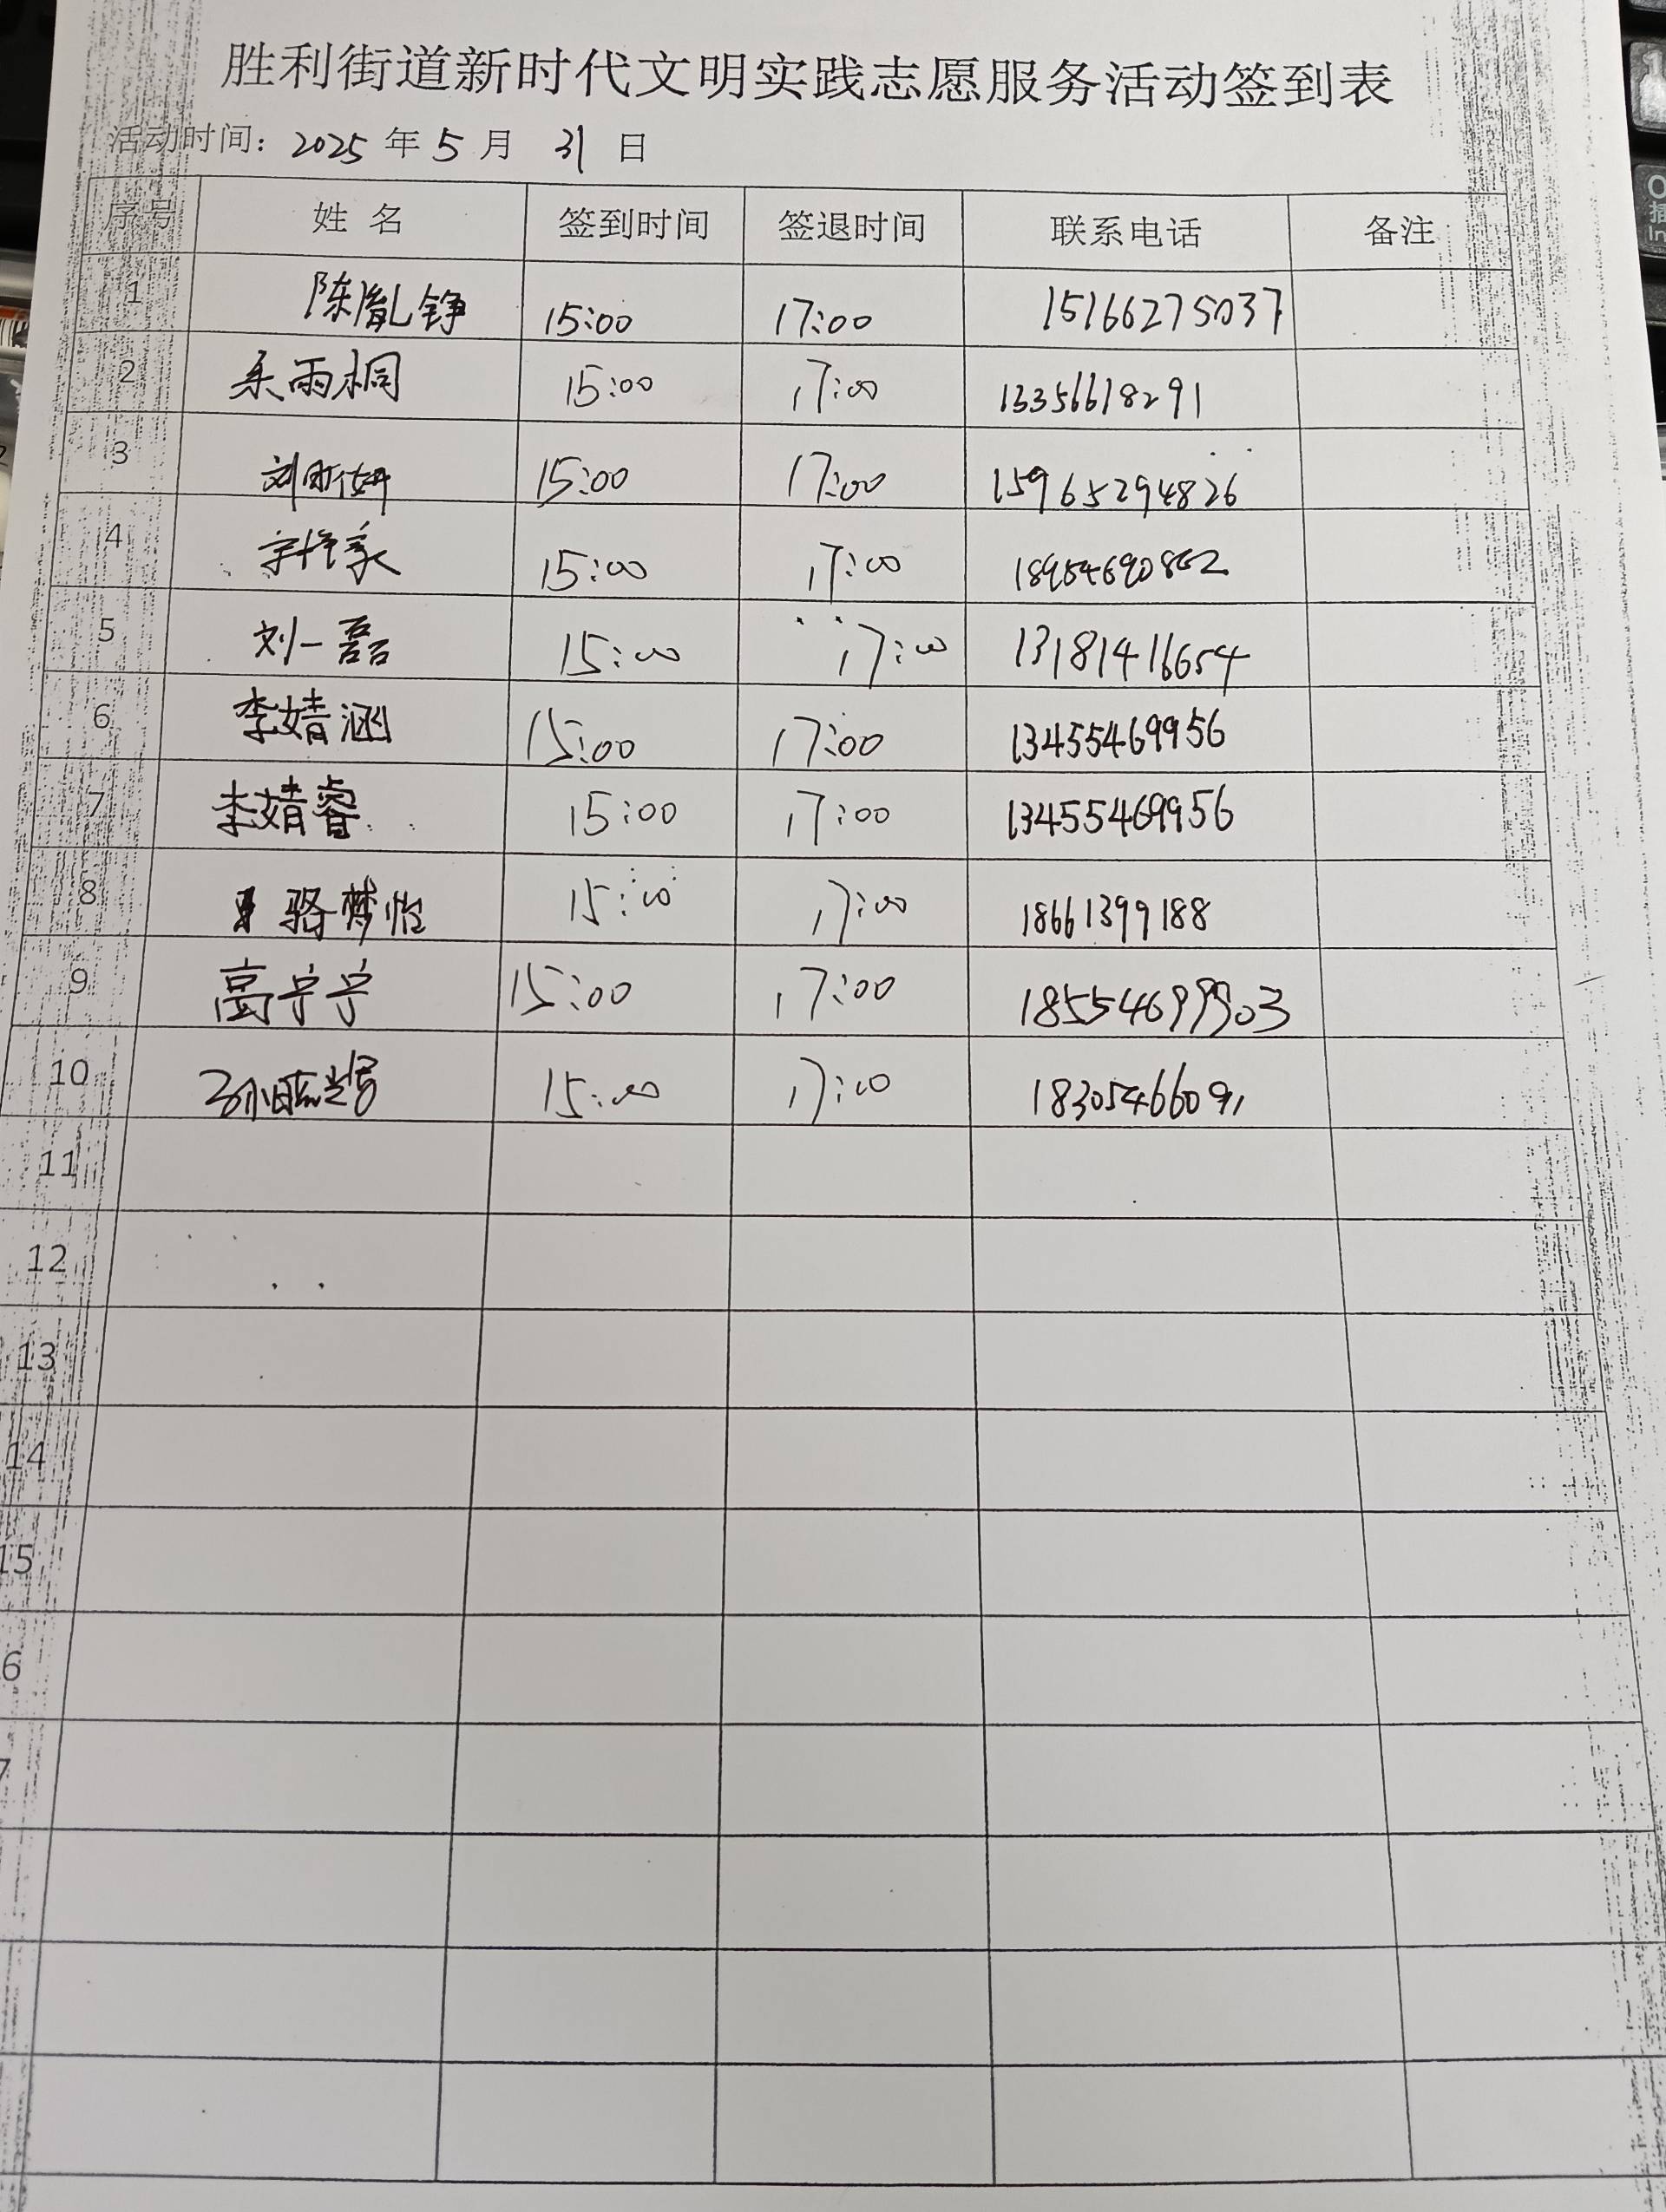 胜利街道新时代文明实践志愿服务活动签到表
活动时间: 2025 年 5 月 31 日
序号 姓 名 签到时间 签退时间 联系电话 备注
1 陈胤铮 15:00 17:00 15166275037
2 雨桐 15:00 17:00 13356618291
3 刘 15:00 17:00 15965294826
4 15:00 17:00
5 刘一磊 15:00 17:00 13181416654
6 李婧涵 15:00 17:00 13455469956
7 李婧睿 15:00 17:00 13455469956
8 骆梦怡 15:00 17:00 18661399188
9 高宁宁 15:00 17:00 18554699903
10 15:00 17:00 18305466091
11
12
13
14
15
6
7